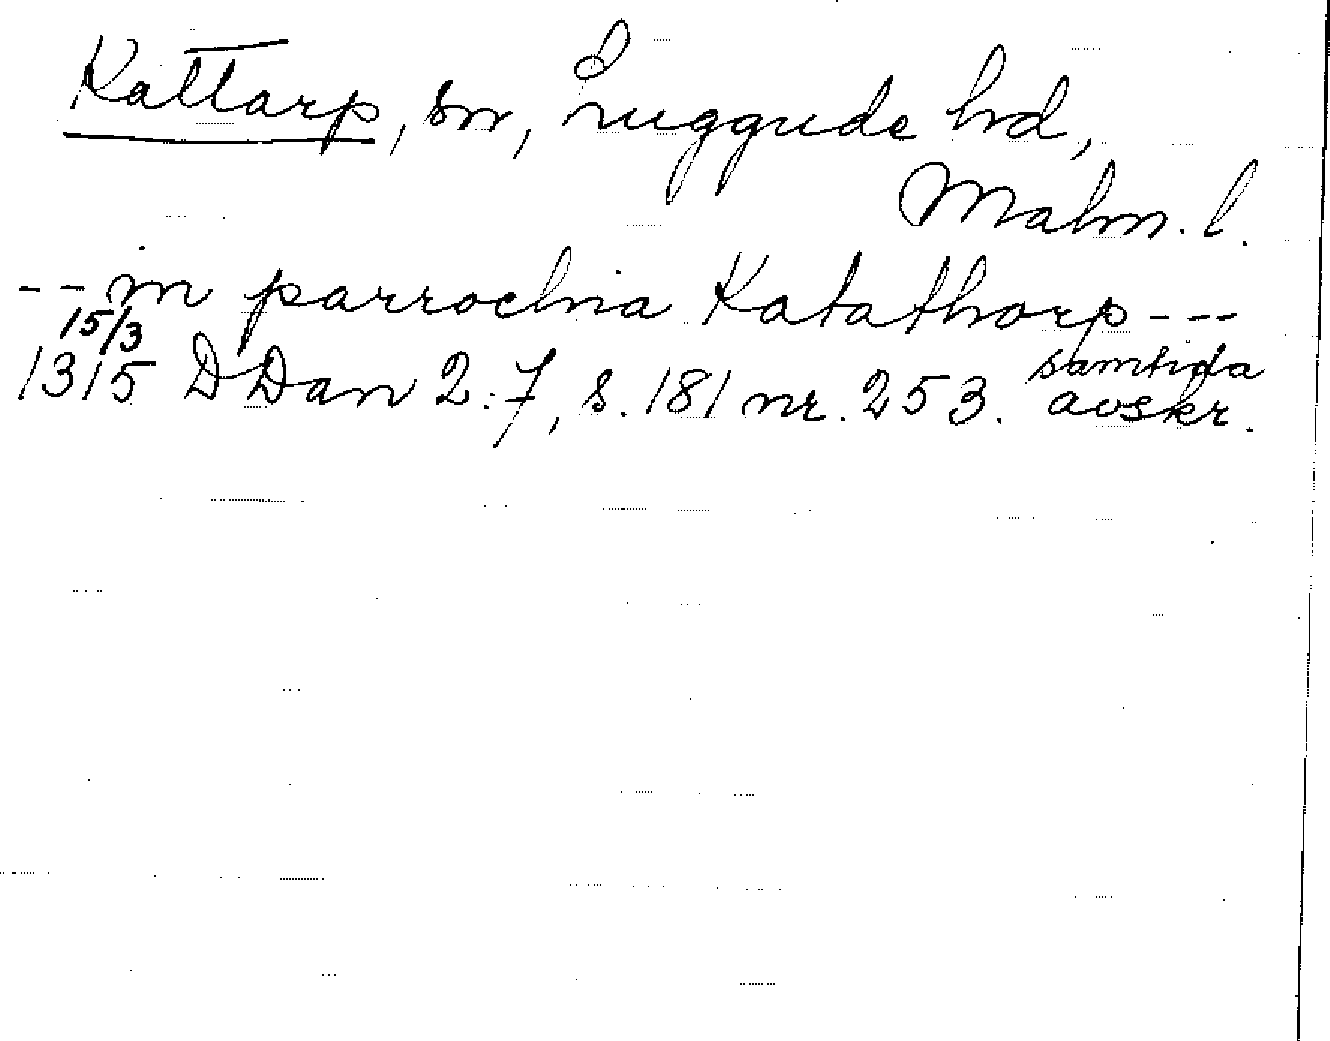 Kattarp, sn, Luggude hd,
Malm. l.
-- in parrochia Katathorp ---
15/3
1315 DDan 2:7, s. 181 nr. 253. samtida
avskr.